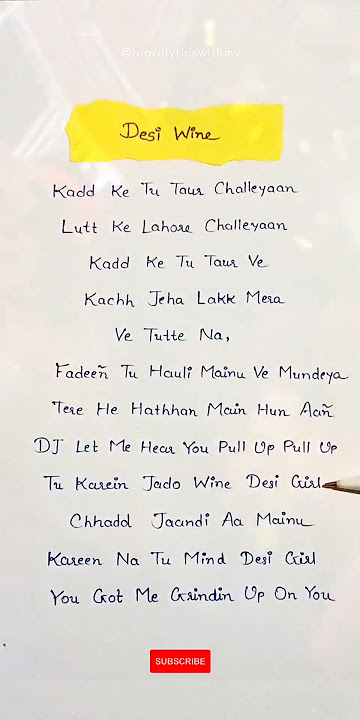 @learnlyricswithmv
Desi Wine
Kadd Ke Tu Taur Challeyaan
Lutt Ke Lahore Challeyaan
Kadd Ke Tu Taur Ve
Kachh Jeha Lakk Mera
Ve Tutte Na,
Fadeeñ Tu Hauli Mainu Ve Mundeya
Tere He Hathhan Main Hun Aañ
DJ Let Me Hear You Pull Up Pull Up
Tu Karein Jado Wine Desi Girl
Chhadd Jaandi Aa Mainu
Kareen Na Tu Mind Desi Girl
You Got Me Grindin Up On You
SUBSCRIBE